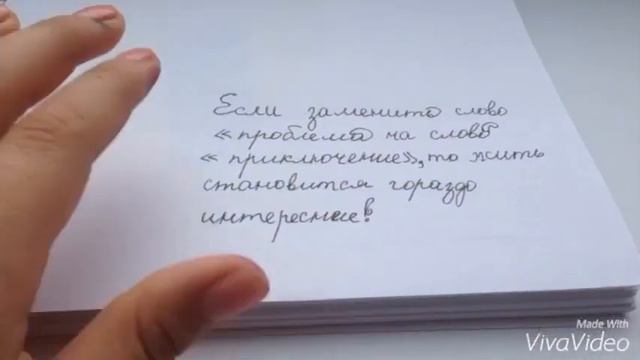 Если заменить слово
«проблема на слово
«приключение», то жить
становится гораздо
интереснее!
Made With
VivaVideo